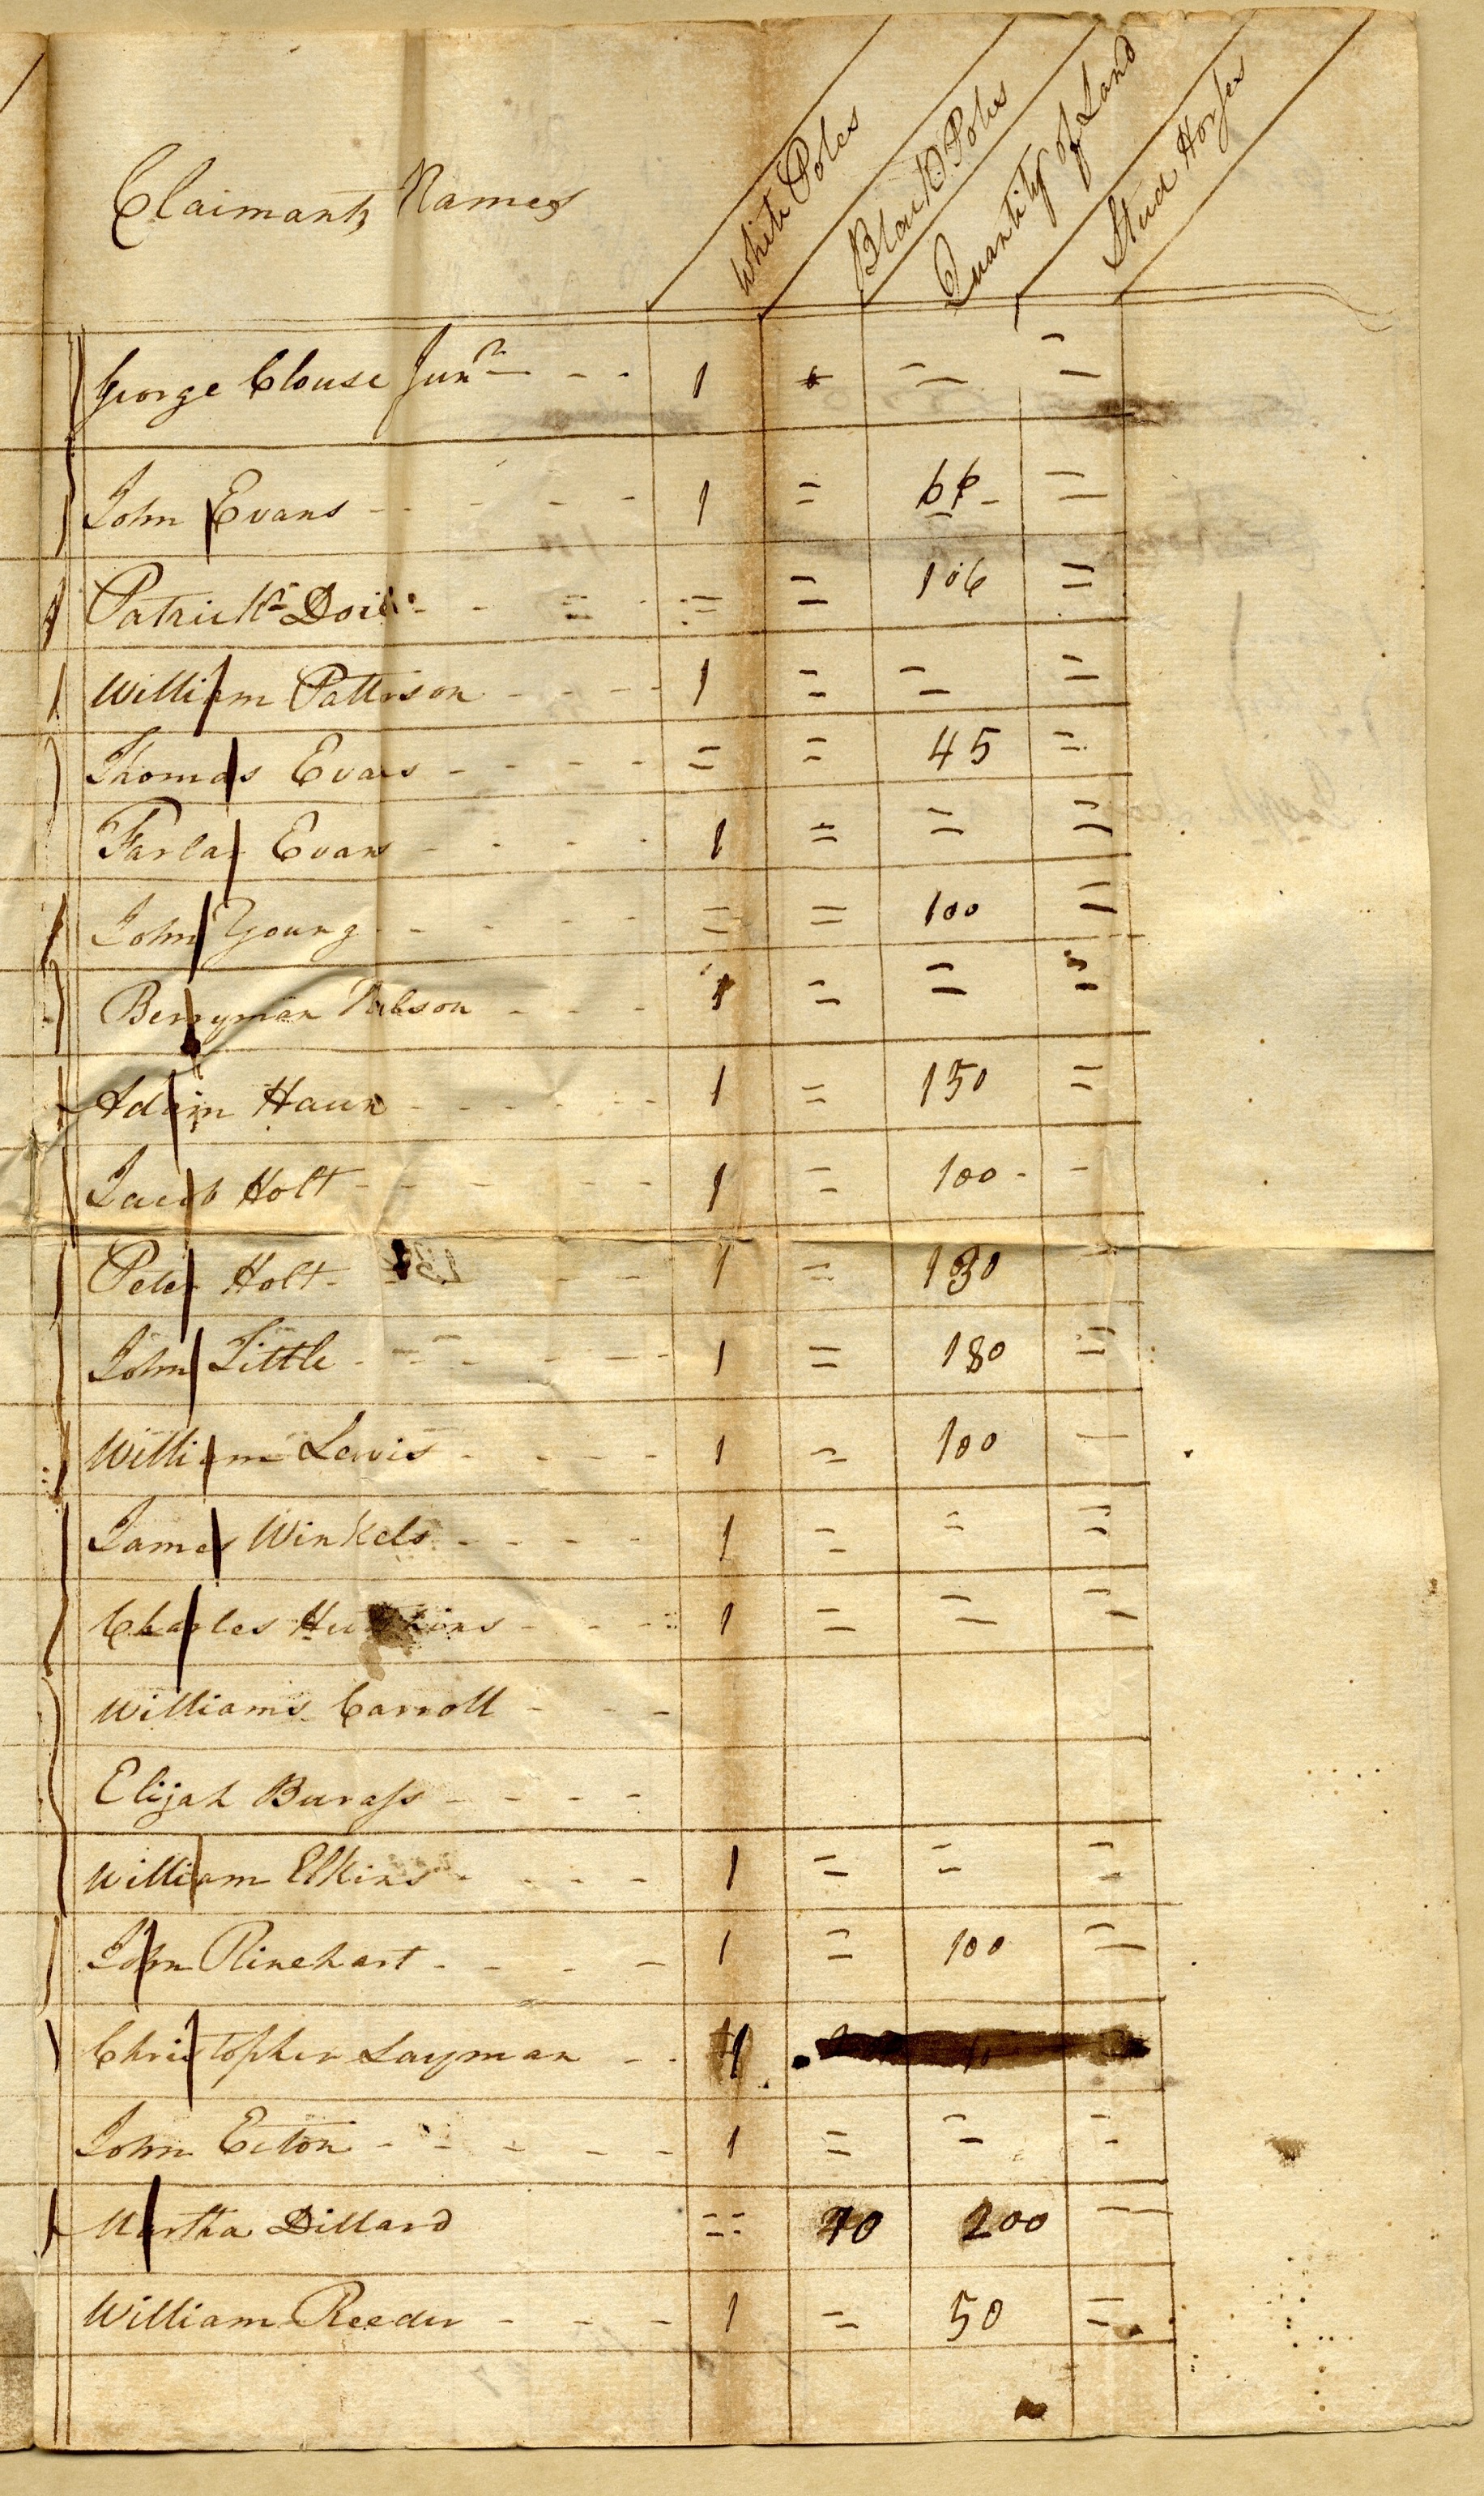 Claimants Names White Poles Black Poles Quantity of Land Stud Horses
George Clouse Junr - - - 1 = =
John Evans - - - - - 1 = =
Patrick Doil - - = = = 106 =
William Pattison - - - - 1 = = =
Thomas Evans - - - - = = 45 =
Farlar Evans - - - - 1 = = =
John Young - - - - = = 100 =
Berryman - - - 1 = = =
Adam Haun - - - - - 1 = 150 =
Jacob Holt - - - - - 1 = 100 - -
Peter Holt - - - 1 = 130
John Little - - - - - - 1 = 180 =
William Lewis - - - - 1 = 100 -
James Winkels - - - - 1 = = =
Charles - - - 1 = = =
Williams Carroll - - -
Elijah Burass - - - -
William Elkins - - - - 1 = = =
John Rinehart - - - - 1 = 100 =
Christopher Layman - - 1
John Ecton - - - - - 1 = = =
Martha Dillard = 200 =
William Reeder - - - 1 = 50 =